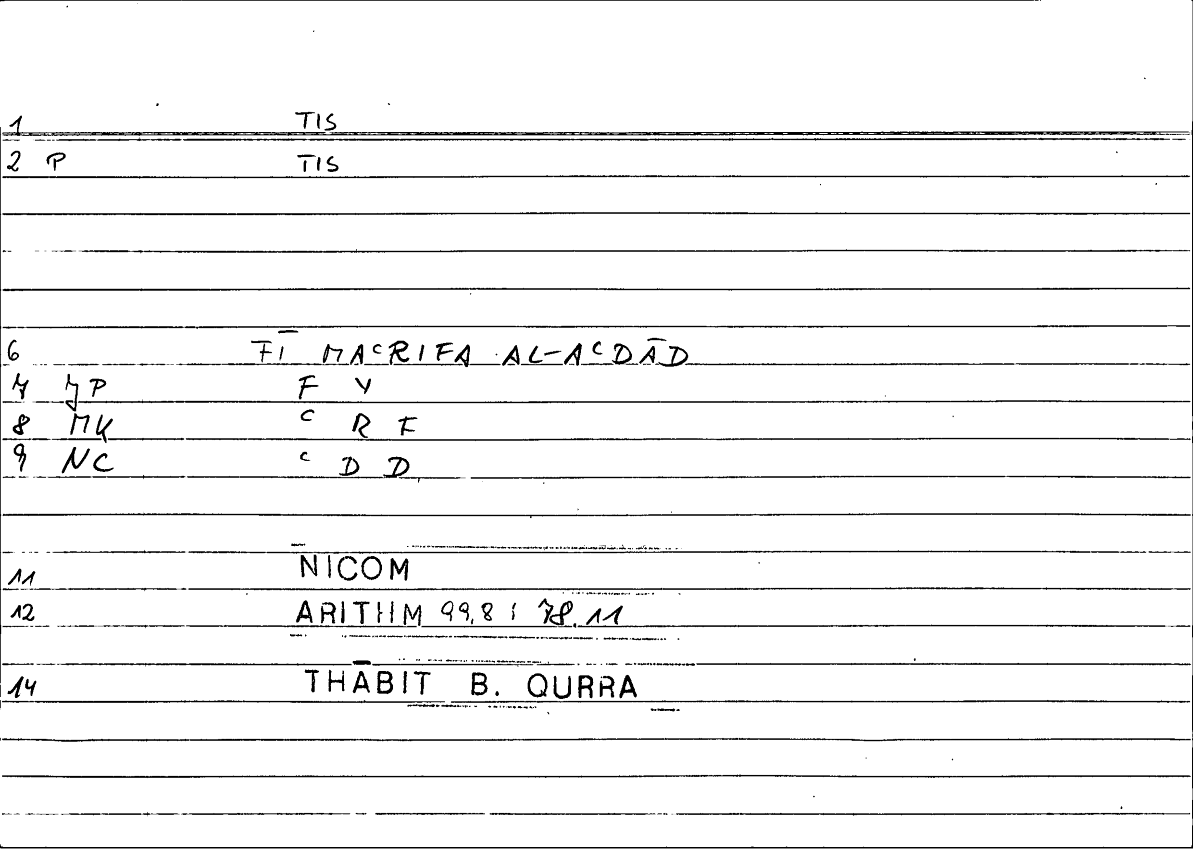 1 TIS
2 P TIS
6 FĪ MAᶜRIFA AL-AᶜDĀD
7 JP F Y
8 MK ᶜ R F
9 NC ᶜ D D
11 NICOM
12 ARITHM 99,8 ; 78.11
14 THĀBIT B. QURRA